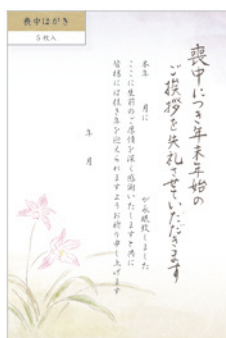 喪中はがき
5枚入
喪中につき年末年始の
ご挨拶を失礼させていただきます
本年　月に　が永眠致しました
ここに生前のご厚情を深く感謝いたしますと共に
皆様には佳き年を迎えられますようお祈り申し上げます
年　月